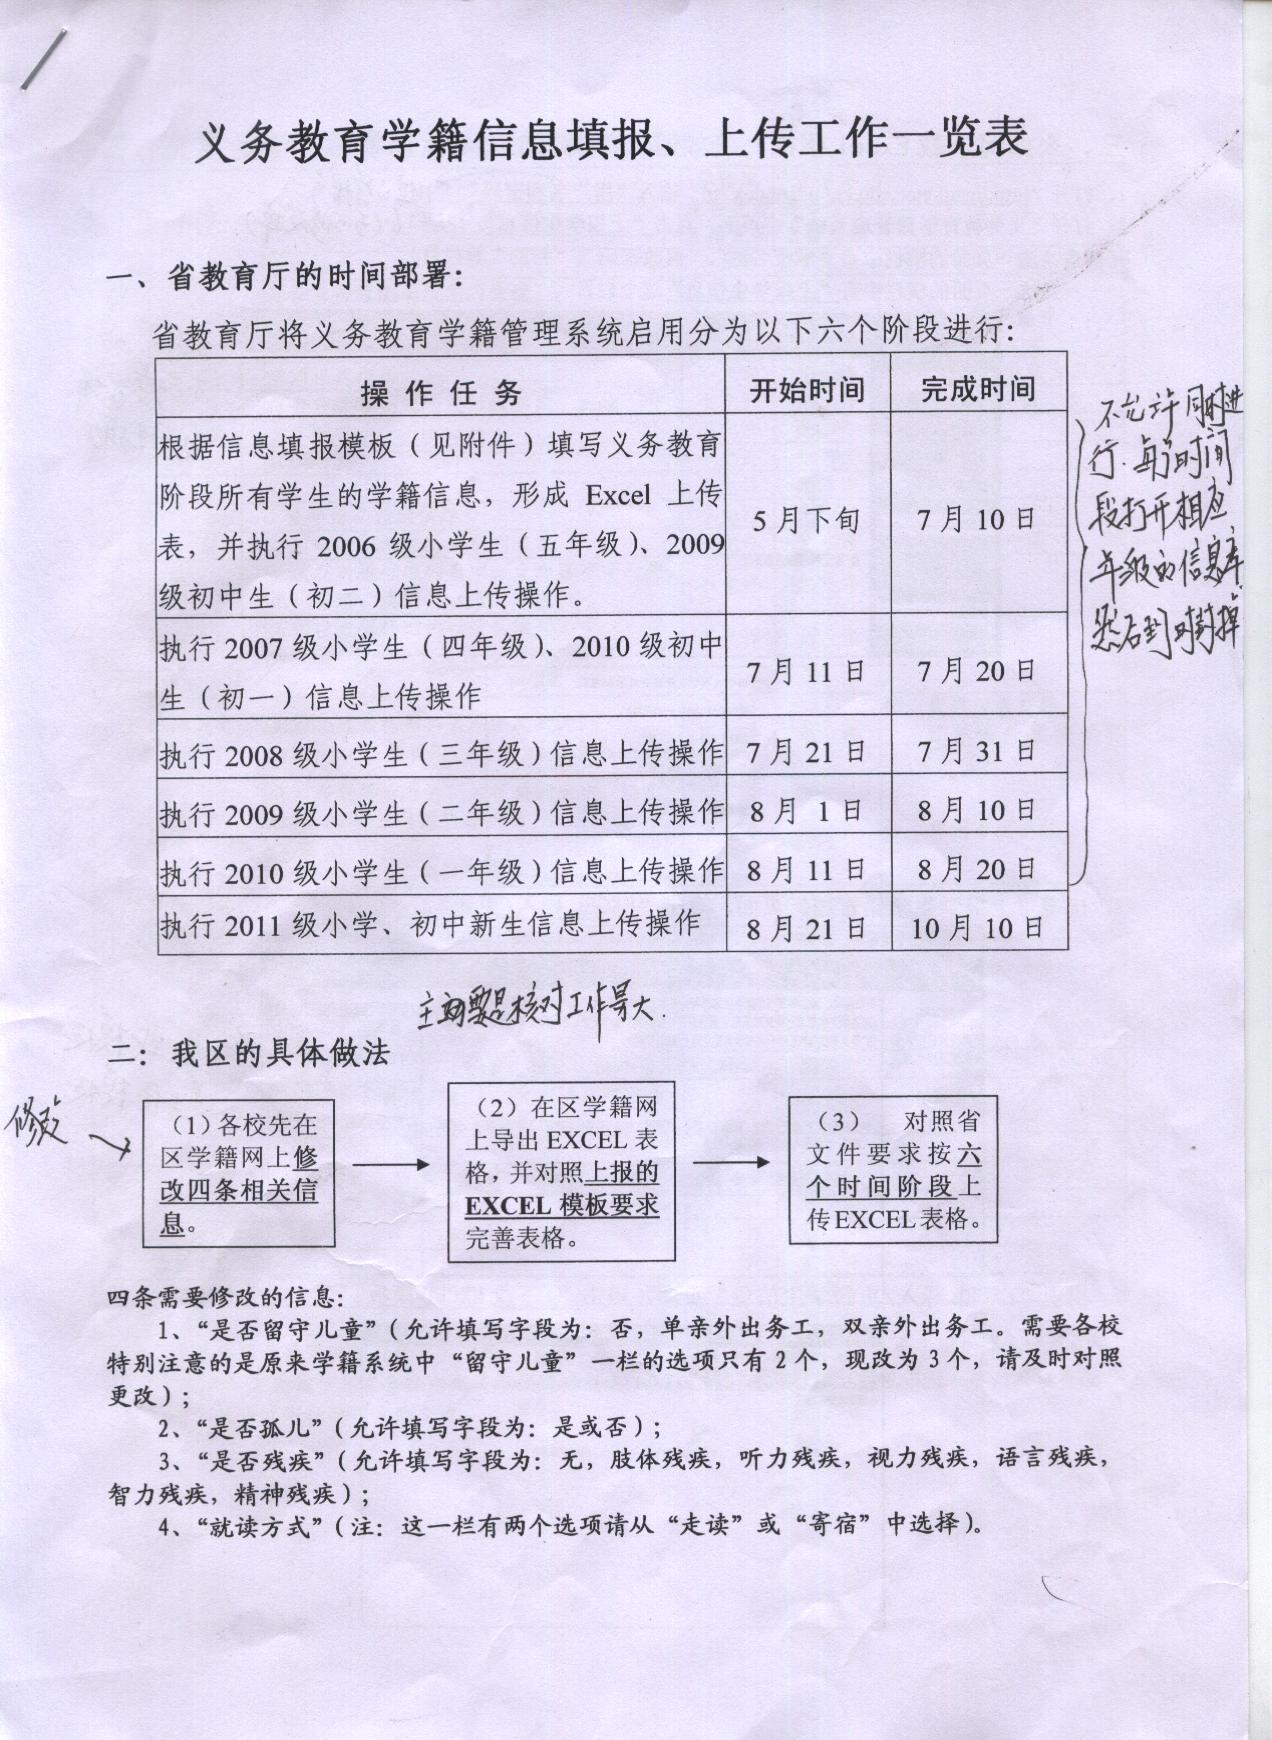 义务教育学籍信息填报、上传工作一览表
一、省教育厅的时间部署：
省教育厅将义务教育学籍管理系统启用分为以下六个阶段进行：
操 作 任 务 开始时间 完成时间
根据信息填报模板（见附件）填写义务教育
阶段所有学生的学籍信息，形成 Excel 上传
表，并执行 2006 级小学生（五年级）、2009
级初中生（初二）信息上传操作。
5 月下旬 7 月 10 日
执行 2007 级小学生（四年级）、2010 级初中
生（初一）信息上传操作
7 月 11 日 7 月 20 日
执行 2008 级小学生（三年级）信息上传操作 7 月 21 日 7 月 31 日
执行 2009 级小学生（二年级）信息上传操作 8 月 1 日 8 月 10 日
执行 2010 级小学生（一年级）信息上传操作 8 月 11 日 8 月 20 日
执行 2011 级小学、初中新生信息上传操作 8 月 21 日 10 月 10 日
不允许同时进
行.每个时间
段打开相应
年级的信息库
然后到时封掉
主要是核对工作量大.
二：我区的具体做法
修改
（1）各校先在
区学籍网上修
改四条相关信
息。
（2）在区学籍网
上导出 EXCEL 表
格，并对照上报的
EXCEL 模板要求
完善表格。
（3） 对照省
文件要求按六
个时间阶段上
传 EXCEL 表格。
四条需要修改的信息：
1、“是否留守儿童”（允许填写字段为：否，单亲外出务工，双亲外出务工。需要各校
特别注意的是原来学籍系统中“留守儿童”一栏的选项只有 2 个，现改为 3 个，请及时对照
更改）；
2、“是否孤儿”（允许填写字段为：是或否）；
3、“是否残疾”（允许填写字段为：无，肢体残疾，听力残疾，视力残疾，语言残疾，
智力残疾，精神残疾）；
4、“就读方式”（注：这一栏有两个选项请从“走读”或“寄宿”中选择）。